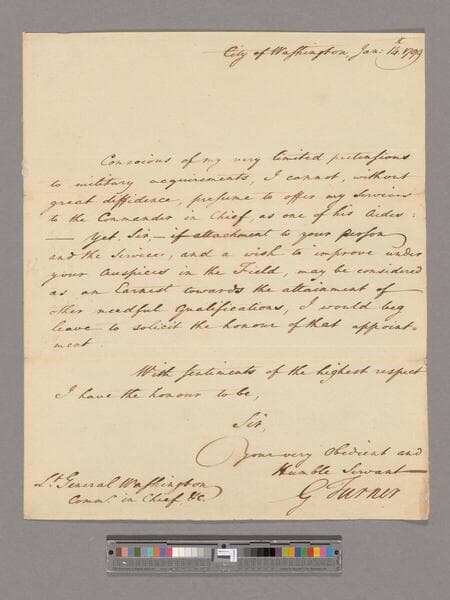 City of Washington, Jan: 14th 1799
Conscious of my very limited pretensions
to military acquirements, I cannot, without
great diffidence, presume to offer my Services
to the Commander in Chief, as one of his Aides:
— Yet, Sir, — if attachment to your person
and the Service, and a wish to improve under
your Auspices in the Field, may be considered
as an Earnest towards the attainment of
other needful Qualifications, I would beg
leave to solicit the honour of that appoint-
ment
With sentiments of the highest respect
I have the honour to be,
Sir,
Your very obedient and
Humble Servant
G Turner
Lt General Washington
Commr in Chief &c.